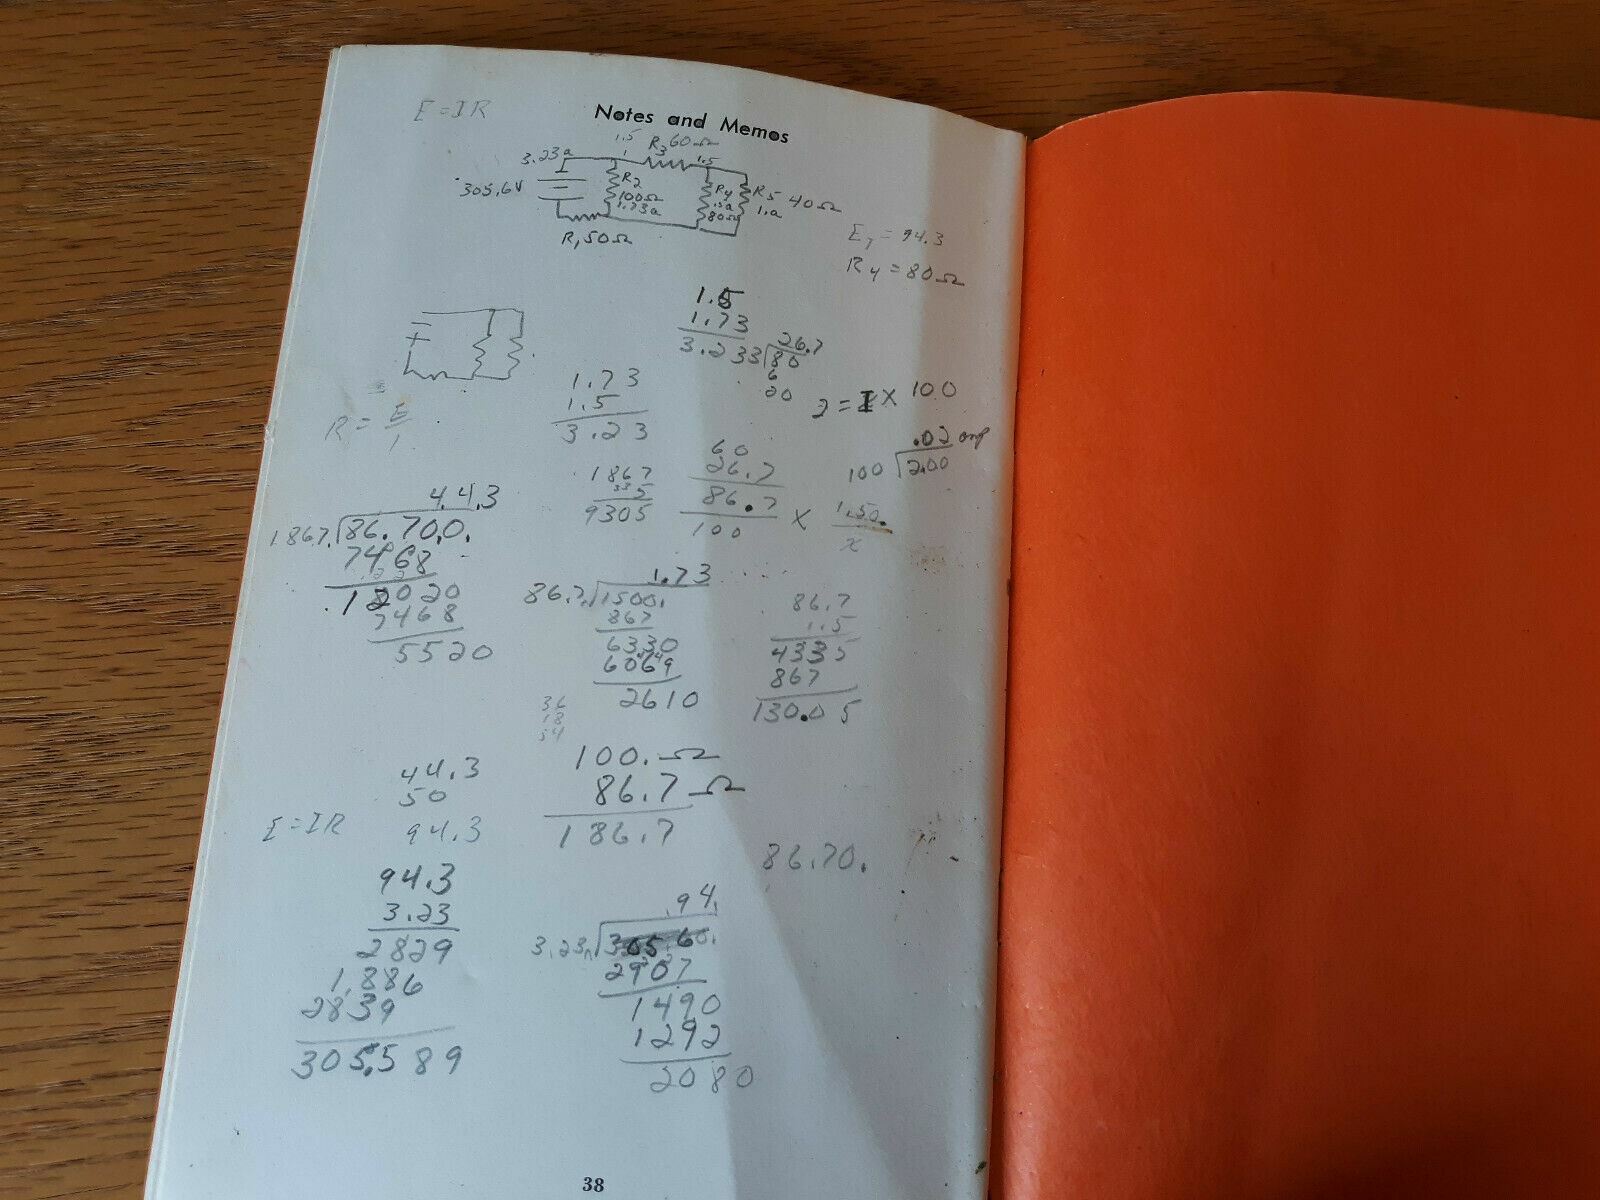 E = IR
Notes and Memos
1.5 R3 60Ω
3.23a 1.5
305.6V
R2
100Ω
1.73a
R4
.5a
80Ω
R5 40Ω
1.a
R1 50Ω
ET = 94.3
R4 = 80Ω
1.5
1.73
3.23
26.7
3 80
6
20
1.73
1.5
3.23
2 = I X 100
.02 amp
100 2.00
R = E
I
60
26.7
86.7
100
X 1.50.
x
1867
5
9305
4.4.3
1867. 86.70.0.
7468
12020
7468
5520
1.73
86.7. 1500.
867
6330
6069
2610
86.7
1.5
4335
867
130.05
36
18
54
100. Ω
86.7 Ω
186.7
44.3
50
94.3
E = IR
86.70.
94.3
3.23
2829
1,886
2839
305.589
.94.
3.23 305.60.
2907
1490
1292
2080
38